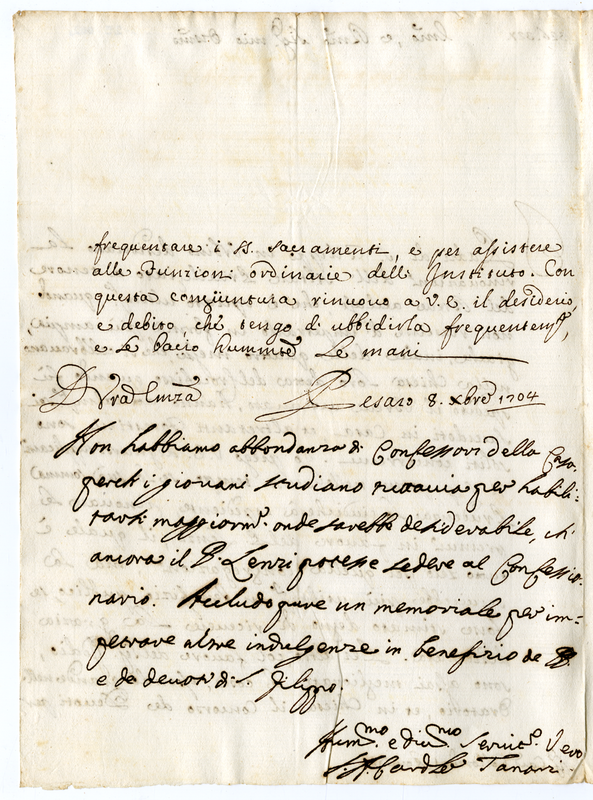 frequentare i SS. Sacramenti, e per assistere
alle Funzioni ordinarie dell' Instituto. Con
questa congiuntura rinuovo a V.E. il desiderio,
e debito, che tengo di ubbidirla frequentem.te,
e le bacio hummte le mani
D Vra Emza Pesaro 8. Xbre 1704
Non habbiamo abbondanza di Confessori della Casa,
perche i giovani studiano tuttavia per habili-
tarsi maggiorm.te onde sarebbe desiderabile, ch'
ancora il P. Lenzi potesse sedere al Confessio-
nario. Accludo pure un memoriale per im-
petrare altre indulgenze in benefizio de PP.
e de devoti di S. Filippo.
Hum.mo e div.mo Servit.e Vero
Card.le Tanari